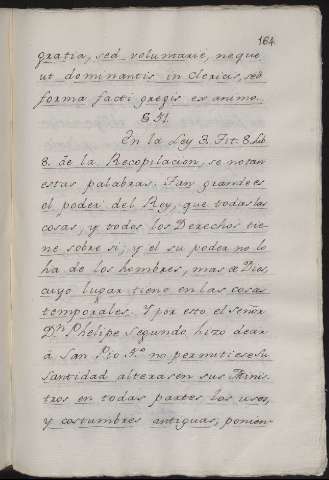 164
gratia, sed voluntarie, neque
ut dominantis in Clericis, sed
forma facti gregis ex animo.
§ 51.
En la Ley 3. Tit. 8. Lib
8. de la Recopilacion, se notan
estas palabras. Tan grande es
el poder del Rey, que todas las
cosas, y todos los Derechos tie-
ne sobre si; y el su poder no lo
ha de los hombres, mas de Dios,
cuyo lugar tiene en las cosas
temporales. Y por esto el Señor
Dn. Phelipe Segundo hizo decir
á San Pio 5.º no permitiese Su
Santidad alterasen sus Minis-
tros en todas partes los usos,
y costumbres antiguas, ponien-